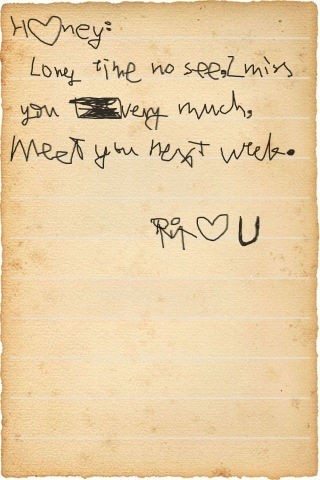 H♡ney:
Long time no see,I miss
you very much,
Meet you next week.
♡ U